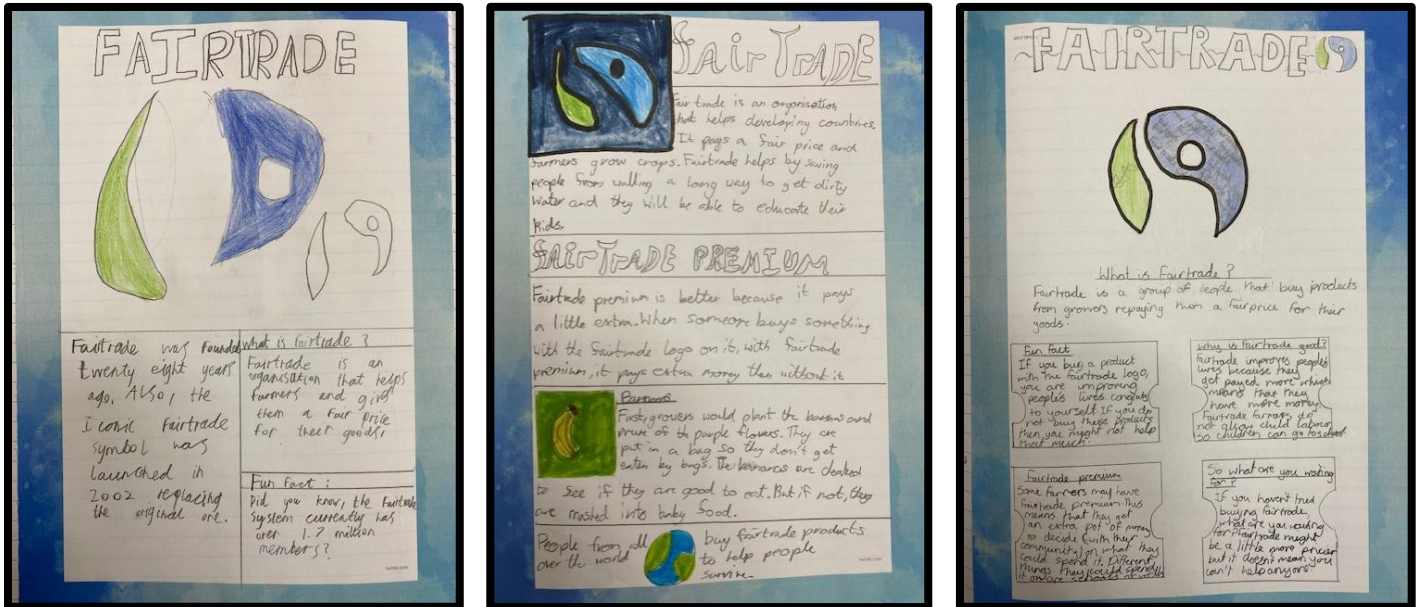 FAIRTRADE
Fairtrade was founded
twenty eight years
ago. Also, the
Iconic Fairtrade
symbol was
launched in
2002 replacing
the original one.
What is fairtrade?
Fairtrade is an
organisation that helps
farmers and give
them a fair price
for their goods,
Fun fact:
Did you know, the Fairtrade
System currently has
over 1.7 million
members?
twinkl.com
FairTrade
Fair trade is an organisation
that helps developing countries.
It pays a fair price and
farmers grow crops. Fairtrade helps by saving
people from walking a long way to get dirty
water and they will be able to educate their
kids.
FairTrade Premium
Fairtrade premium is better because it pays
a little extra. When someone buys something
with the fairtrade logo on it, with fairtrade
premium, it pays extra money than without it
Bananas
First, growers would plant the bananas and
of the purple flowers. They are
put in a bag so they don't get
eaten by bugs. The bananas are checked
to see if they are good to eat. But if not, they
are mashed into baby food.
People from all
over the world
buy fairtrade products
to help people
survive.
twinkl.com
FAIRTRADE
What is Fairtrade?
Fairtrade is a group of people that buy products
from growers repaying them a fair price for their
goods.
Fun fact
If you buy a product
with the fairtrade logo,
you are improving
people's lives. congrats
to yourself. If you do
not buy these products
then you might not help
that much.
Why is Fairtrade good?
Fairtrade improves peoples
lives because they
get payed more which
means that they
have more money.
Fairtrade farmers do
not allow child labour
so children can go to school
Fairtrade premium
Some farmers may have
fairtrade premium. This
means that they get
an extra pot of money
to decide (with their
community) on what they
could spend it. Different
things they could spend
it on are schools or wells
So what are you waiting
for?
If you haven't tried
buying fairtrade,
what are you waiting
for? Fairtrade might
be a little more pricier
but it doesn't mean you
can't help anyone.